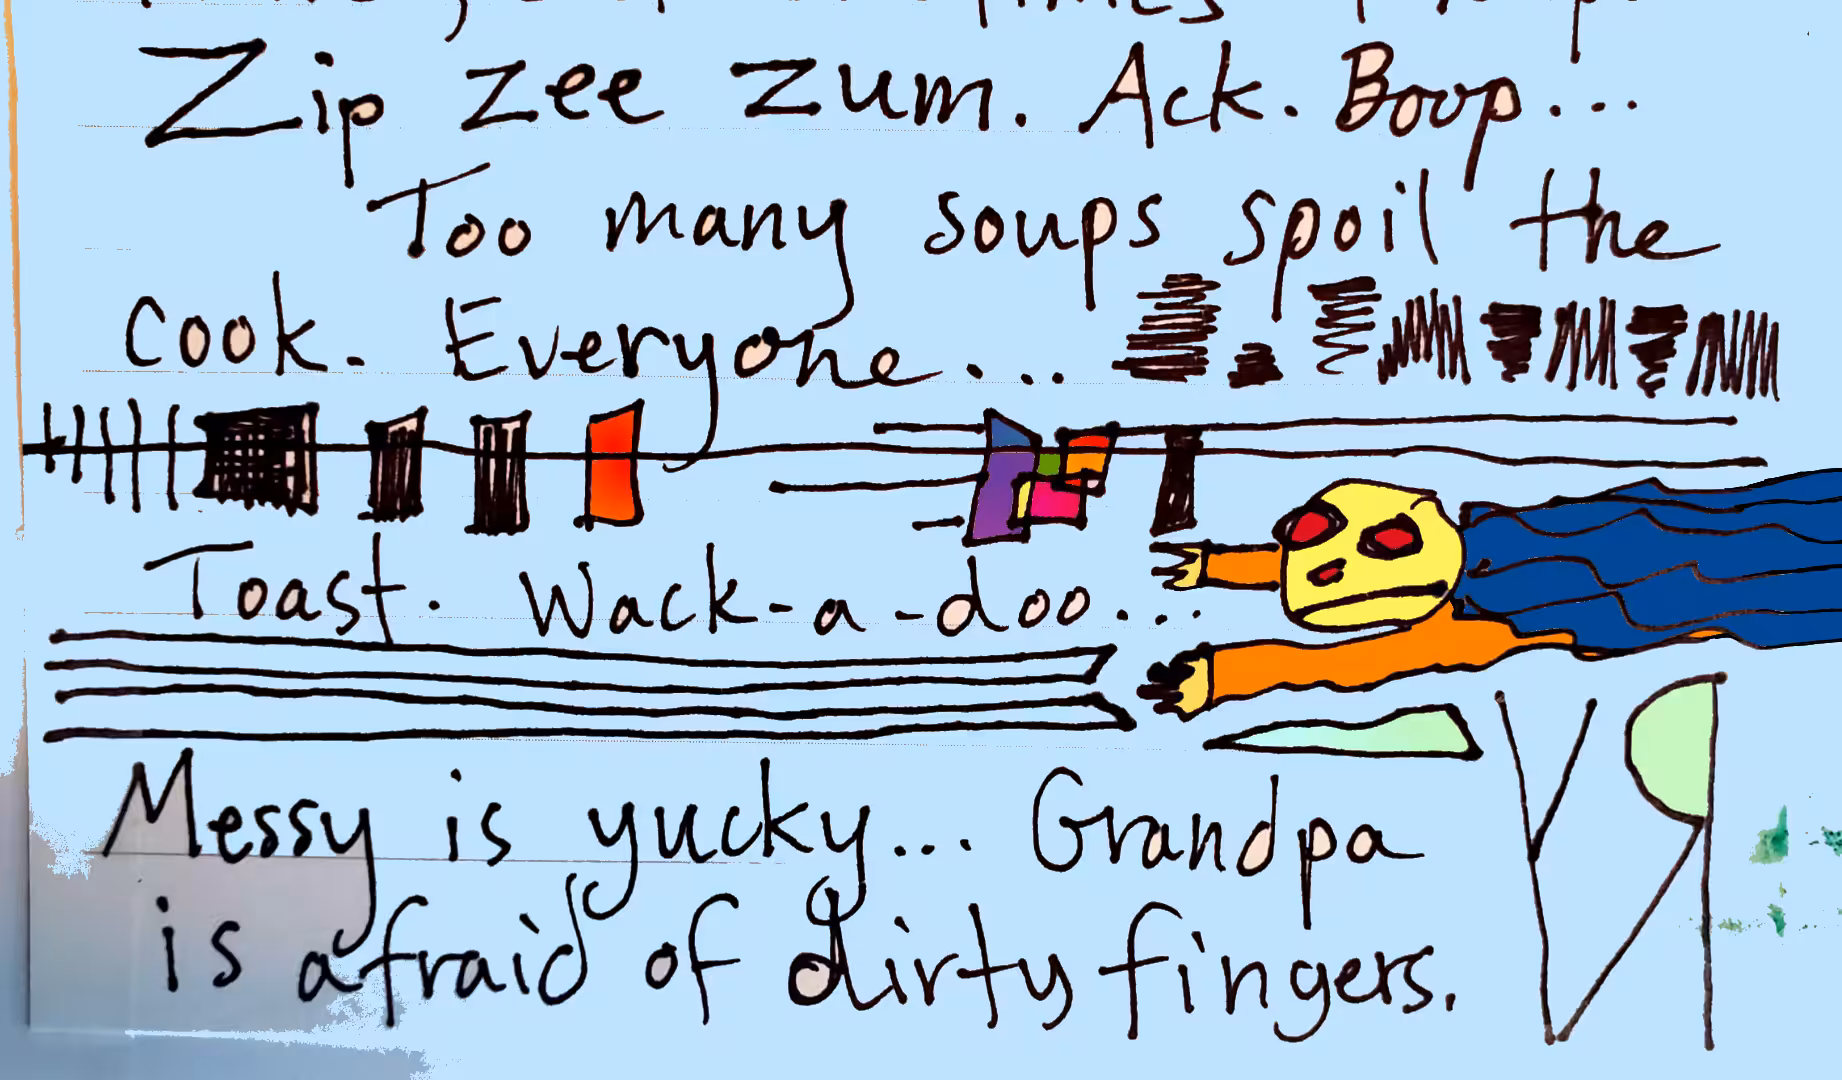 Zip zee zum. Ack. Boop...
Too many soups spoil the
cook. Everyone...
Toast. Wack-a-doo...
Messy is yucky... Grandpa
is afraid of dirty fingers.